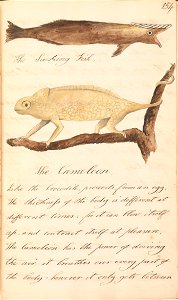 184
The Sea Fish
The Cameleon
Like the Crocodile, proceeds from an egg.
The thickness of the body is different at
different times: for it can blow itself
up and contract itself at pleasure,
the Cameleon has the power of driving
the air it breathes over every part of
the body - however it only gets between